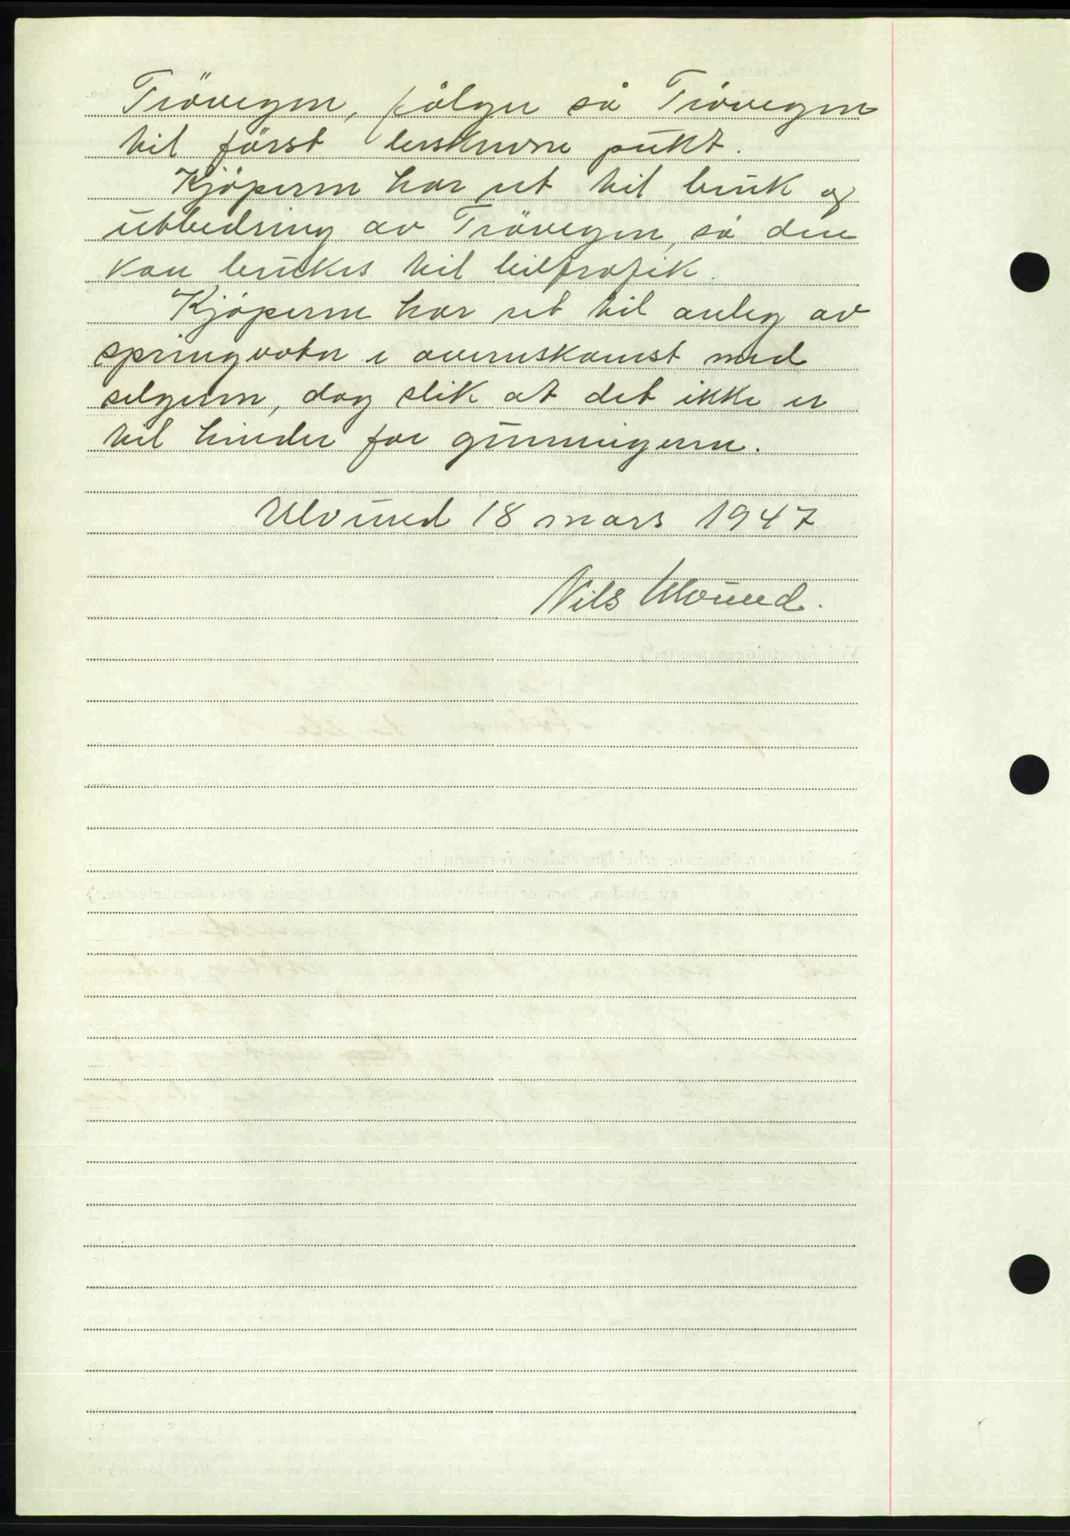 Trövegen, fölger så Trövegen
til först beskrevne punkt.
Kjöperen har ret til bruk og
utbedring av Trövegen, så den
kan brukes til biltrafik.
Kjöperen har ret til anleg av
springvatn i overenskomst med
selgeren, dog slik at det ikke er
til hinder for
Ulvund 18 mars 1947
Nils Ulvund.